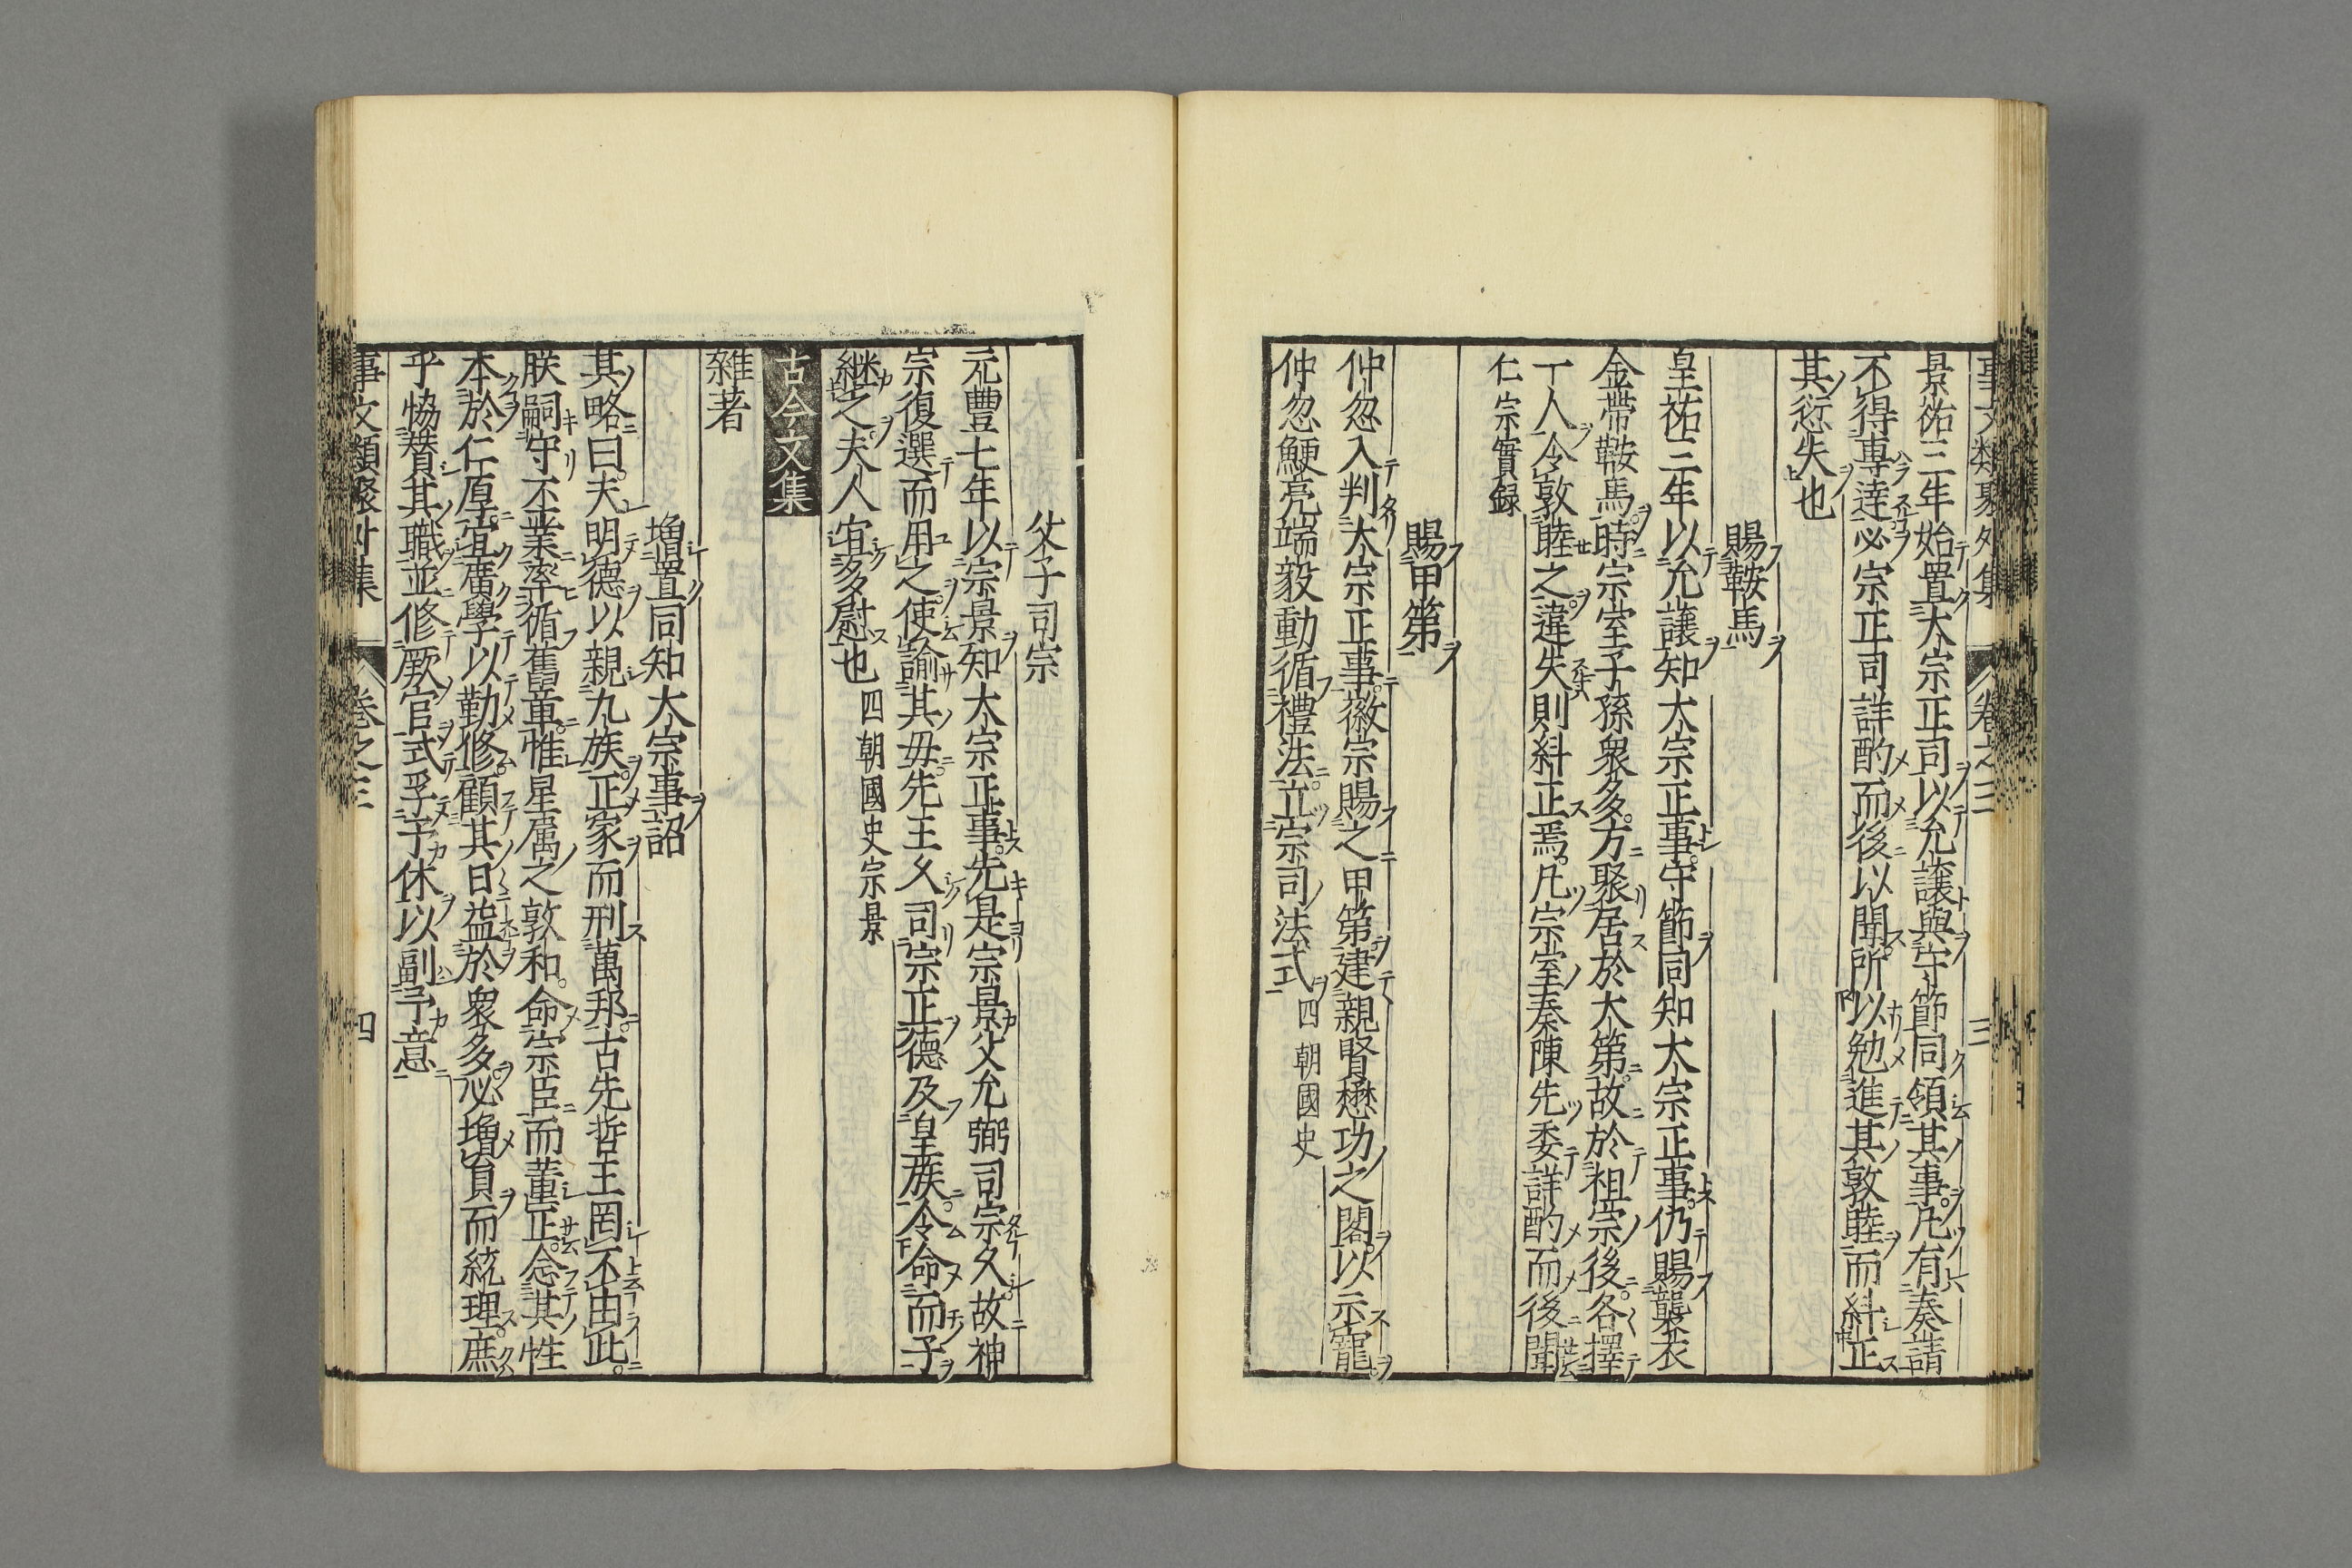 事文類聚外集 卷之三 三
景祐三年始置大宗正司以允讓與守節同領其事凡有奏請
不得專達必宗正司詳酌而後以聞所以勉進其敦睦而糾正
其愆失也
賜鞍馬
皇祐三年以允讓知大宗正事守節同知大宗正事仍賜襲衣
金帶鞍馬時宗室子孫衆多方聚居於大第故於祖宗後各擇
一人令敦睦之違失則糾正焉凡宗室奏陳先委詳酌而後聞
仁宗實録
賜甲第
仲忽入判大宗正事徽宗賜之甲第建親賢懋功之閣以示寵
仲忽鯁亮端毅動循禮法立宗司法式 四朝國史
父子司宗
元豐七年以宗景知大宗正事先是宗景父允弼司宗久故神
宗復選而用之使諭其母先王久司宗正德及皇族今命而子
継之夫人宜多慰也 四朝國史宗景
古今文集
雜著
増置同知大宗事詔
其略曰夫明德以親九族正家而刑萬邦古先哲王罔不由此
朕嗣守丕業率循舊章惟星属之敦和命宗臣而董正念其性
本於仁厚宜廣學以勤修顧其日益於衆多必増員而統理庶
乎恊賛其職並修厥官式孚予休以副予意
事文類聚外集 卷之三 四